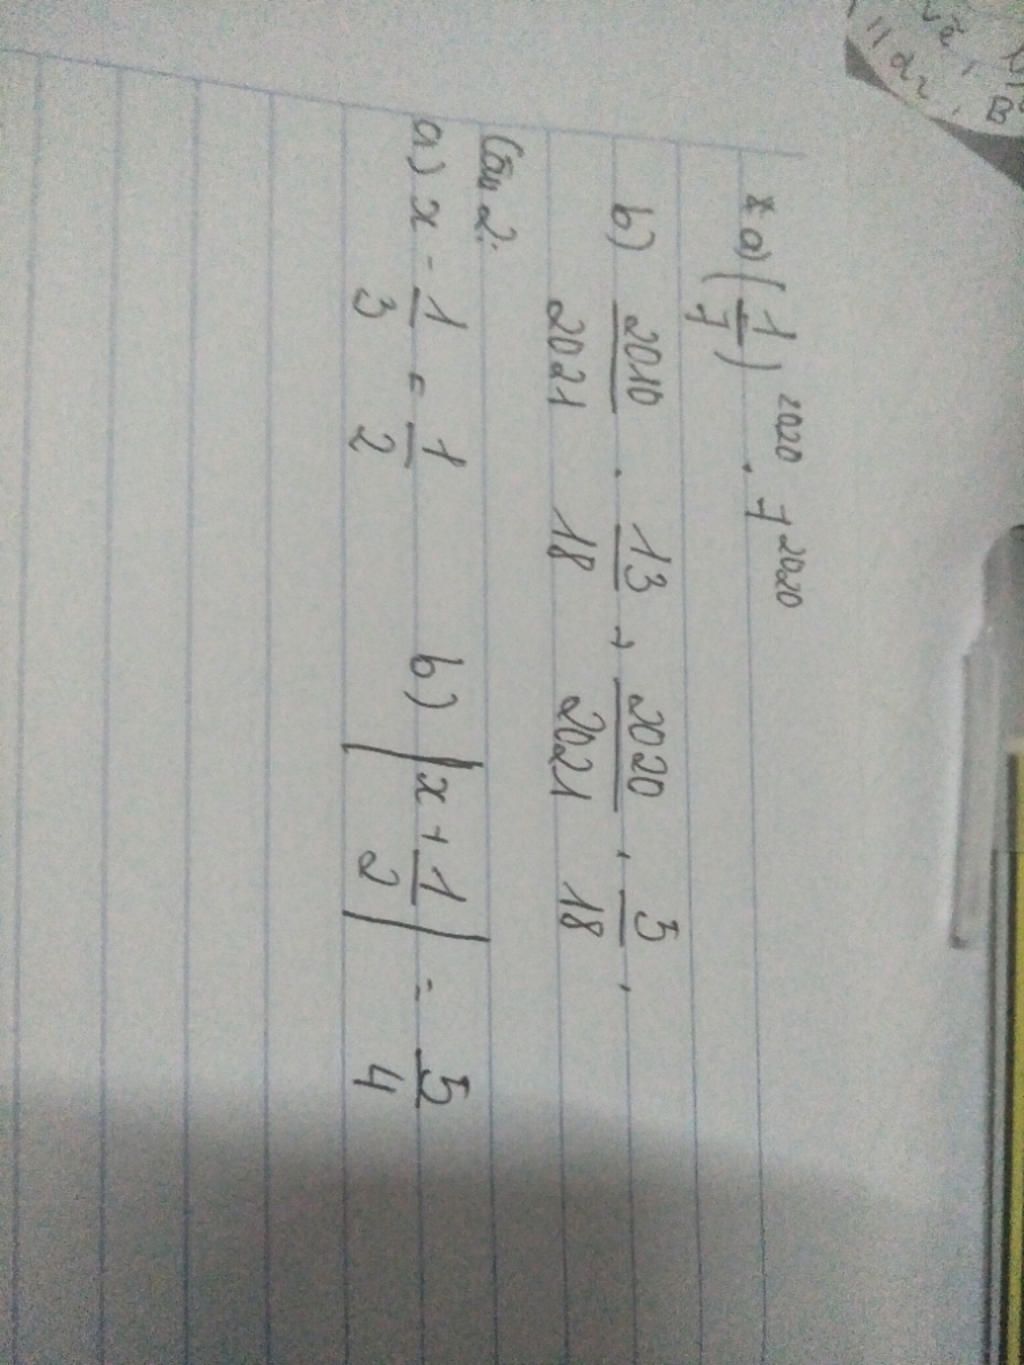 * a) (1/7)^2020 . 7^2020
b) 2010/2021 . 13/18 + 2020/2021 . 5/18 .
Câu 2:
a) x - 1/3 = 1/2 b) |x + 1/2| = 5/4